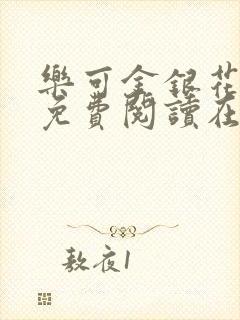 樂可金銀花
免費閱讀在
敖夜1